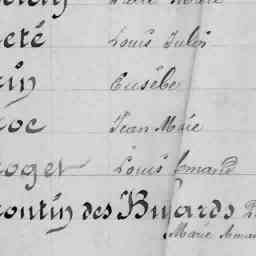 eté Louis Jules
rin Eusèbe
roc Jean Marie
roget Louis Amand
rontin des Buffards
Marie Aman